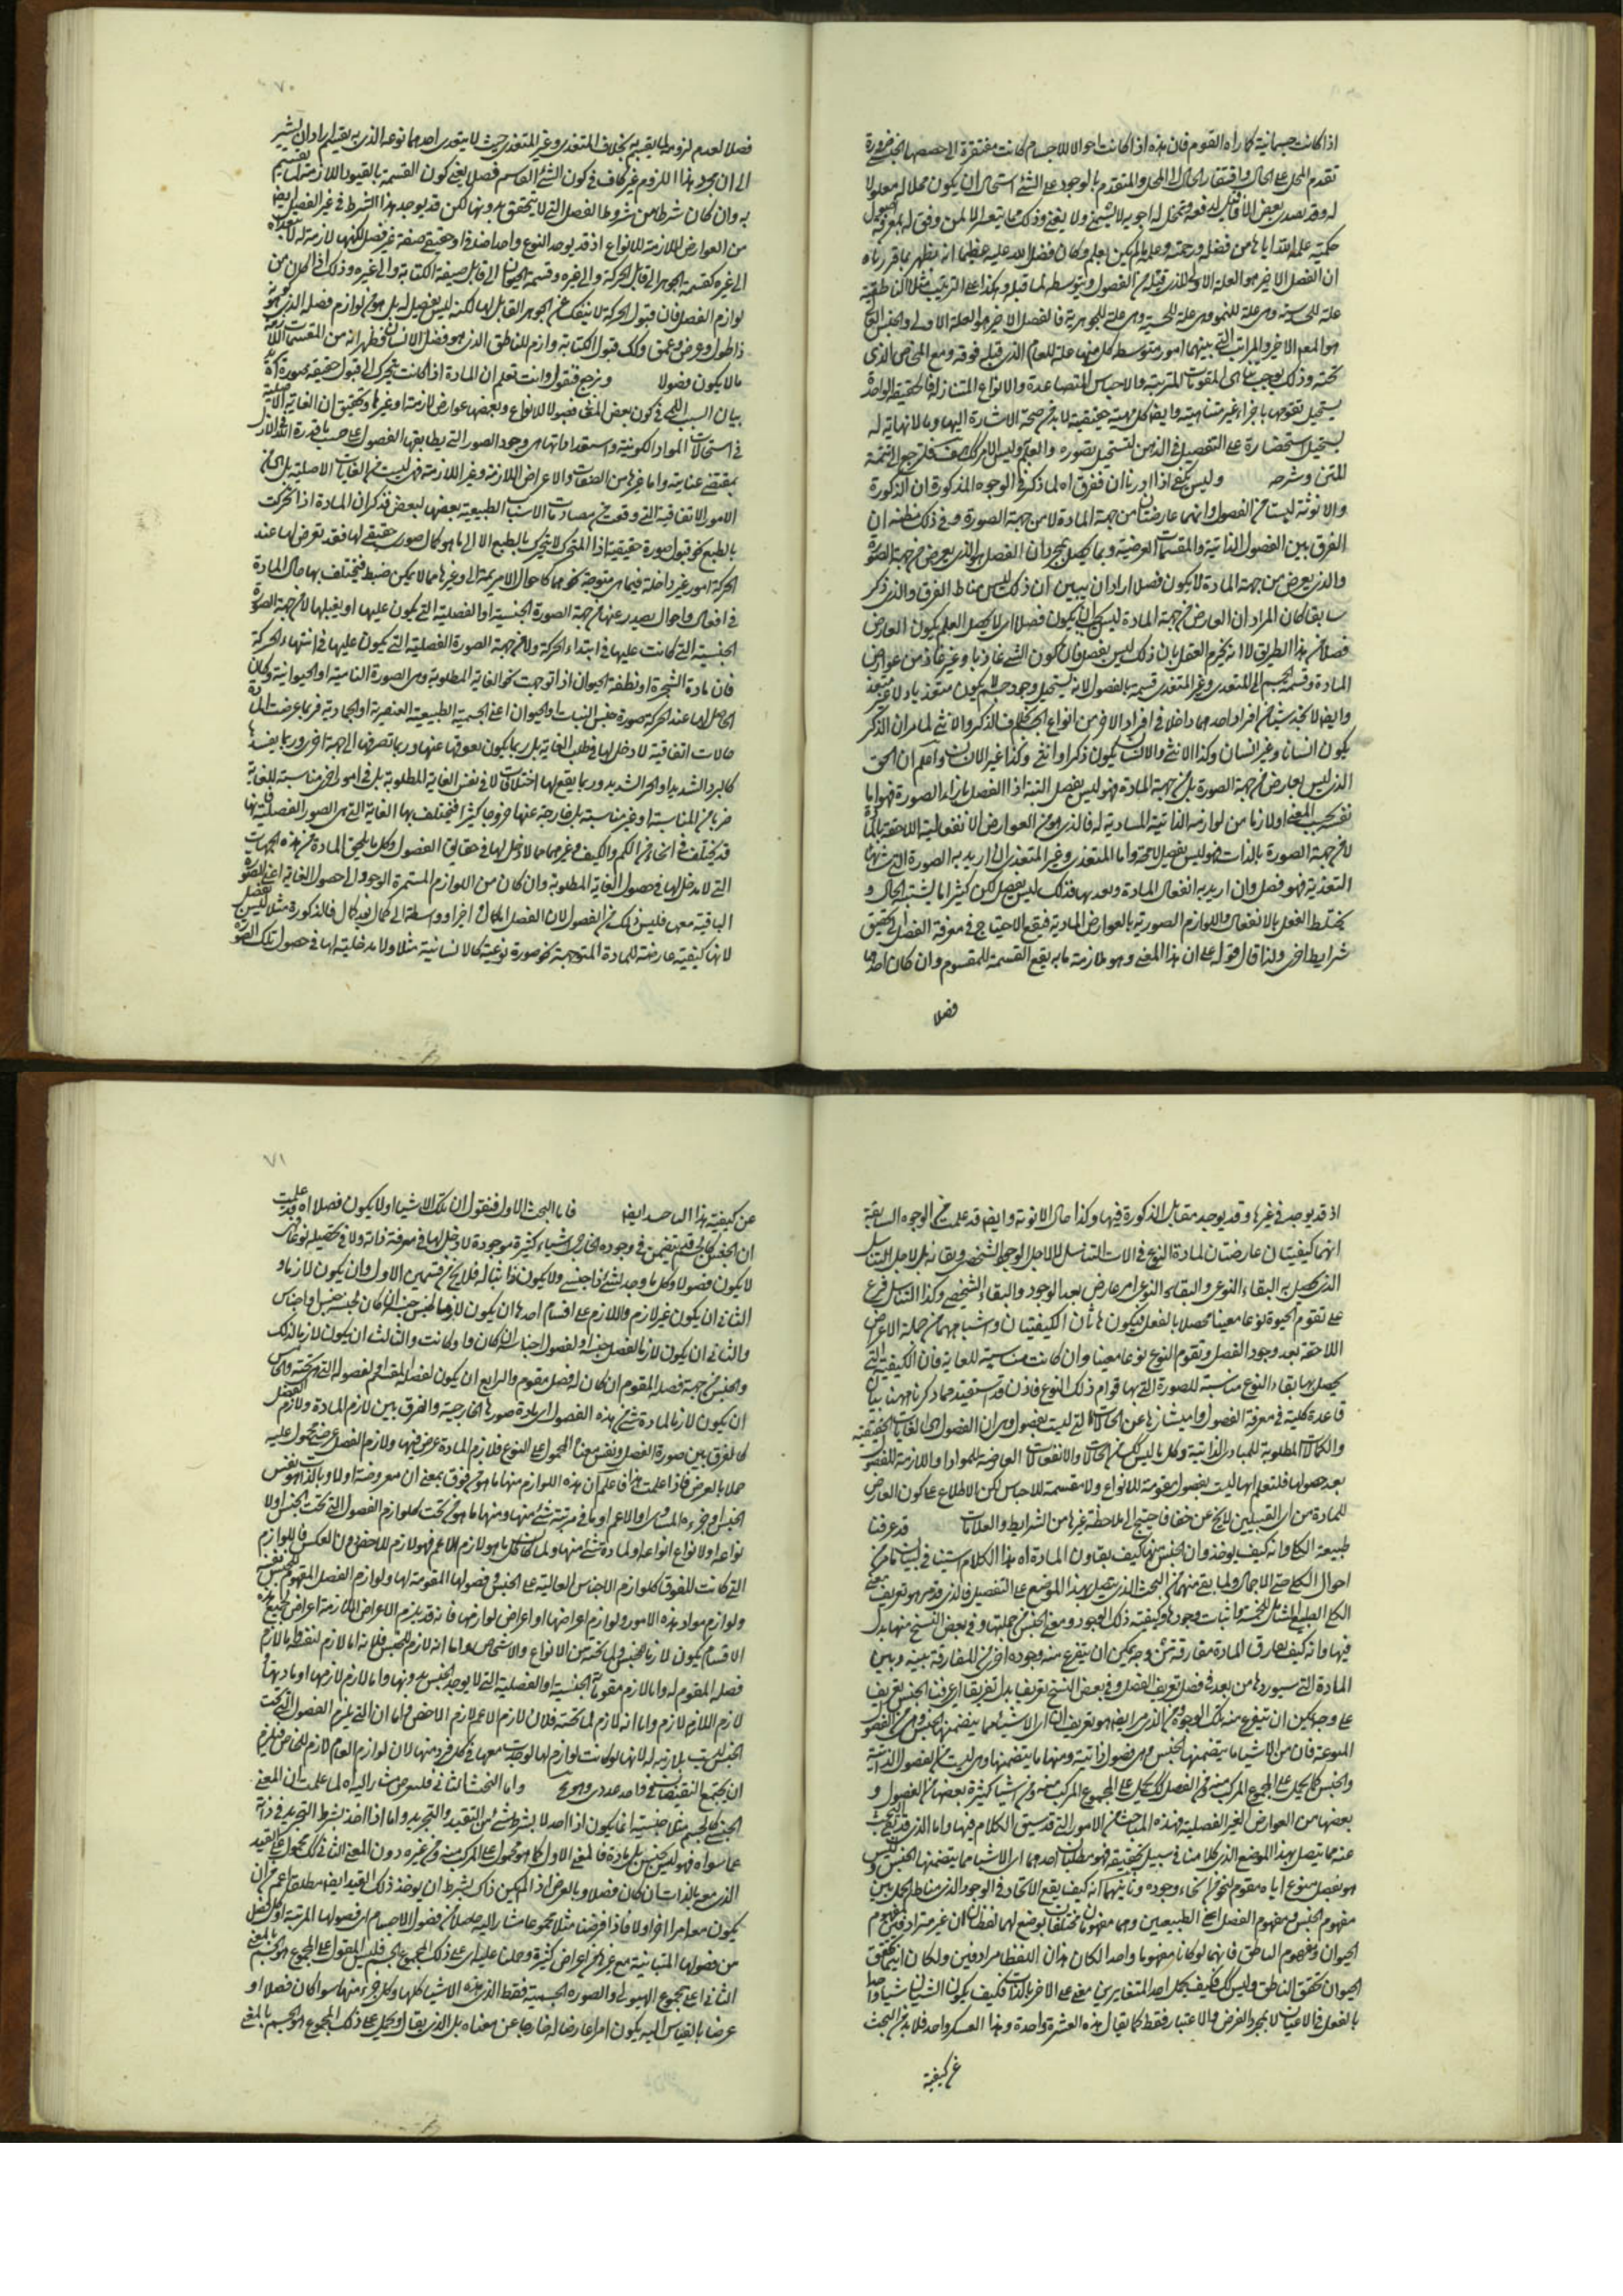 اذا كانت جسمانية كما رآه القوم فان هذه اذا كانت احوالا للاجسام كانت مفتقرة الى حصصها الجنسية ضرورة
تقدم المحل على الحال وافتقار الحال الى المحل والمتقدم بالوجود على الشئ استحال ان يكون محلا له معلولا
له وقد يصدر بعض الافاعيل
حكمته علمه الله اياها من فضله ورحمته وعلمه ما لم يكن يعلم وكان فضل الله عليه عظيما انه يظهر بما قررناه
ان الفصل الاخير هو العلة الاولى للذى قبله من الفصول وبتوسطه لما قبله وهكذا على الترتيب مثلا الناطقية
علة للحساسية وهى علة للنمو وهى علة للجسمية وهى علة للجوهرية فالفصل الاخير هو العلة الاولى والجنس العالى
هو المعلول الاخير والمراتب التى بينهما امور متوسطة كل منها علة للعام الذى قبله فوقه ومع الخاص الذى
تحته وذلك يوجب تناهى المقومات المترتبة والاجناس المتصاعدة والانواع المتنازلة فالحقيقة الواحدة
يستحيل تقومها باجزاء غير متناهية وايضا كل مهية حقيقية لا بد من صحة الاشارة اليها وما لا نهاية له
يستحيل استحضاره على التفصيل فى الذهن فتستحيل تصوره والعلم به وليس الامر كذلك فلنرجع الى تتمة
المتن وشرحه وليس يكفى اذا اوردنا ان نفرق اه لما ذكر فى الوجوه المذكورة ان الذكورة
والانوثة ليستا من الفصول وانهما عارضتان من جهة المادة لا من جهة الصورة وفى ذلك مظنة ان
الفرق بين الفصول الذاتية والمقسمات العرضية وبما يحصل بمجرد ان الفصل هو الذى يعرض من جهة الصورة
والذى يعرض من جهة المادة لا يكون فصلا اراد ان يبين ان ذلك ليس مناط الفرق والذى ذكر
سابقا كان المراد ان العارض من جهة المادة ليس يجب ان يكون فصلا اى لا يحصل العلم بكون العارض
فصلا من هذا الطريق لا انه يجزم العقل بان ذلك ليس بفصل فان كون الشئ غاذيا وغير غاذ من عوارض
المادة وقسمة الجسم الى المتغذى وغير المتغذى قسمة بالفصول لانه يستحيل وجود جسم يكون متغذيا ولا غير متغذ
وايضا لا نجد شيئا من افراد احدهما داخلا فى افراد الاخر من انواع الجسم بخلاف الذكر والانثى لما مر ان الذكر
يكون انسانا وغير انسان وكذا الانثى والانسان يكون ذكرا وانثى وكذا غير الانسان واعلم ان الحق
الذى ليس بعارض من جهة الصورة بل من جهة المادة فهو ليس بفصل البتة اذ الفصل بازاء الصورة فهو اما
نفسه بحسب المعنى او لازما من لوازمه الذاتية المساوية له فالذى هو من العوارض الانفعالية اللاحقة بالمادة
لا من جهة الصورة بالذات فهو ليس بفصل لا محة واما المتغذى وغير المتغذى ان اريد به الصورة التى شانها
التغذية فهو فصل وان اريد به انفعال المادة وبعد بها فذلك ليس بفصل لكن كثيرا ما يشتبه الحال و
يختلط الفعل بالانفعال واللوازم الصورية بالعوارض المادية فيقع الاحتياج فى معرفة الفصل الى تحقيق
شرايط اخرى ولذا قال قوله على ان هذا المعنى وهو ملازمة ما به يقع القسمة للمقسوم وان كان احد ما
فصلا
٧٠
فصلا لعدم لزوم ما يقسم به بخلاف المتغذى وغير المتغذى حيث لا يتعدى احدهما نوعه الذى به يقسم اراد ان يشير
الى ان مجرد هذا اللزوم غير كاف فى كون الشئ القاسم فصلا يعنى كون القسمة بالقيود اللازمة لما ينقسم
به وان كان شرطا من شروط الفصل التى لا يتحقق بدونها لكن قد يوجد هذا الشرط فى غير الفصيل ايضا
من العوارض اللازمة للانواع اذ قد يوجد النوع واحدا
الى غيره كقسمة الجوهر الى قابل الحركة والى غيره وقسمة الحيوان الى قابل صيغة الكتابة والى غيره وذلك اذا كان من
لوازم الفصل فان قبول الحركة لا ينفك عن الجوهر القابل لها لكنه ليس بفصل له بل هو من لوازم فصله الذى هو كونه
ذا طول وعرض وعمق وكذلك قبول الكتابة لوازم للناطق الذى هو فصل الانسان فظهر انه من المقسمات اللازمة
ما لا يكون فصولا ونرجع فنقول وانت تعلم ان المادة اذا كانت يتحرك الى قبول حقيقة صورة اه
بيان السبب اللمى فى كون بعض المعانى فصولا للانواع وبعضها عوارض لازمة او غيرها وتحقيق ان الغاية الاصلية
فى استحالات المواد الكونية واستعداداتها هى وجود الصور التى يطابقها الفصول على حسب ما قدره الله فى الازل
بمقتضى عنايته واما غيرها من الصفات والاعراض اللازمة وغير اللازمة فهى ليست من الغايات الاصلية بل هى من
الامور الاتفاقية التى وقعت من مصادمات الاسباب الطبيعية بعضها لبعض فذكر ان المادة اذا تحركت
بالطبع نحو قبول صورة حقيقية اذ المتحرك لا يتحرك بالطبع الا الى ما هو كمال صورى حقيقى لها فقد تعرض لها عند
الحركة امور غير داخلة فيما هى متوجهة نحوها كاحوال الامزجة او غيرها مما لا يمكن ضبط فيختلف بها حال المادة
فى افعال واحوال يصدر عنها من جهة الصورة الجنسية او الفصلية التى يكون عليها او يقبلها لا من جهة الصورة
الجنسية التى كانت عليها فى ابتداء الحركة ولا من جهة الصورة الفصلية التى يكون عليها فى انتهاء الحركة
فان مادة الشجرة او نطفة الحيوان اذا توجهت نحو الغاية المطلوبة وهى الصورة النامية او الحيوانية وكان
الحاصل لها عند الحركة صورة جنس النبات او الحيوان اعنى الجسمية الطبيعية العنصرية او الجمادية فربما عرضت المادة
حالات اتفاقية لا دخل لها فى طلب الغاية بل ربما يكون يعوق عنها وربما تصرفها الى جهة اخرى وربما يفسدها
كالبرد الشديد او الحر الشديد وربما يقع لها اختلافات لا فى نفس الغاية المطلوبة بل فى امور اخر مناسبة للغاية
ضربا من المناسبة او غير مناسبة بل خارجة عنها خروجا كثيرا فيختلف بها الغاية التى هى الصور الفصلية فانها
قد يختلف فى انحاء من الكم والكيف وغيرهما مما لا دخل لها فى حقايق الفصول وكل ما يلحق المادة من هذه الجهات
التى لا مدخل لها فى حصول الغاية المطلوبة وان كان من اللوازم المستمرة الوجود الى حصول الغاية اعنى الصورة
الباقية معها فليس ذلك من الفصول لان الفصل اما كمال اخير او وسطة الى كمال بعد كمال فالذكورة مثلا ليس بفصل
لانها كيفية عارضة للمادة المتوجهة نحو صورة نوعية كالانسانية مثلا ولا مدخلية لها فى حصول تلك الصورة
اذ قد يوجد فى غيرها وقد يوجد مقابل الذكورة فيها وكذا حال الانوثة وايضا قد علمت من الوجوه السابقة
انهما كيفيتان عارضتان لمادة النوع فى الات التناسل لا لاجل الوجود الشخصى وبقائه بل لاجل التناسل
الذى يحصل به البقاء النوعى والبقاء النوعى امر عارض بعد الوجود والبقاء الشخصى وكذا التناسل فرع
على تقوم الحيوة نوعا معينا محصلا بالفعل فيكون هاتان الكيفيتان واشباههما من جملة الاعراض
اللاحقة بعد وجود الفصل وتقوم النوع نوعا معينا وان كانت مناسبة للغاية فان الكيفية التى
يحصل بها بقاء النوع مناسبة للصورة التى بها قوام ذلك النوع فاذن قد يستفيد مما ذكرنا ههنا بيان
قاعدة كلية فى معرفة الفصول وامتيازها عن الحالات التى ليست بفصول وهى ان الفصول هى الغايات الحقيقية
والكمالات المطلوبة للمبادى الذاتية وكل ما ليس كذلك من الحالات والانفعالات العارضة للمواد او اللازمة للفصول
بعد حصولها فلتعلم انها ليست بفصول مقومة للانواع ولا مقسمة للاجناس لكن الاطلاع على كون العارض
للمادة من اى القبيلين لا يخ عن خفا فاحتيج الى ملاحظة غيرها من الشرايط والعلامات قد عرفنا
طبيعة الكلى وانه كيف يوجد وان الجنس منها كيف يفارق المادة اه هذا الكلام استيناف لبيان ما من
احوال الكلى حتى الاجمال ولما بقى منها من البحث الذى يتصل بهذا الموضع على التفصيل فالذى قد مر هو تعريف معنى
الكلى الطبيعى الشامل للخمسة واثبات وجودها وكيفية ذلك الوجود ومعنى الجنس من جملتها وفى بعض النسخ منها بدل
فيها وانه كيف يفارق المادة مفارقة تمن وجه يمكن ان يتفرع منه وجوه اخرى من المفارقة بينه وبين
المادة التى سيوردها من بعد فى فصل تعريف الفصل وفى بعض النسخ تعريف بدل تفريق اى عرف الجنس بتعريف
على وجه يمكن ان يتفرع منه تلك الوجوه ومن الذى مر ايضا هو تعريف ان اى الاشياء مما يتضمنها الجنس وهى الفصول
المنوعة فان من الاشياء ما يتضمنها الجنس وهى فصول ذاتية ومنها ما يتضمنها وهى ليست من الفصول الذاتية
والجنس كما يحمل على المجموع المركب منه ومن الفصل كذلك يحمل على المجموع المركب منه ومن اشياء كثيرة بعضها من الفصول و
بعضها من العوارض الغير الفصلية فهذه المباحث من الامور التى قد سبق الكلام فيها واما الذى قد بقى البحث
عنه مما يتصل بهذا الموضع الذى كلامنا فى سبيل تحقيقه فهو مطلبان احدهما اى الاشياء مما يتضمنها الجنس وليس
هو بفصل منوع اياه مقوم لنحو من انحاء وجوده وثانيهما انه كيف يقع الاتحاد فى الوجود الذى مناط الحمل بين
مفهوم الجنس ومفهوم الفصل اعنى الطبيعيين وهما مفهومان مختلفان يوضع لهما لفظان غير مترادفين كمفهوم
الحيوان ومفهوم الناطق فانهما لو كانا مفهوما واحدا لكان هذان اللفظان مرادفين ولكان اينما تحقق
الحيوان تحقق الناطق وليس كذلك فكيف يحمل احد المتغايرين معنى على الاخر بالذات فكيف يكون الشيئان شيئا واحدا
بالفعل فى الاعيان لا بمجرد الفرض والاعتبار فقط كما يقال هذه العشرة واحدة وهذا العسكر واحد فلا بد من البحث
عن كيفية
٧١
عن كيفية هذا الاتحاد ايضا فاما البحث الاول فنقول ان تلك الاشياء اولا يكون فصلا اه قد علمت
ان الجنس كالجسم يتضمن فى وجوده الخارجى اشياء كثيرة موجودة لا دخل لها فى معرفة ذاته ولا فى تحصيله نوعا فهى
لا يكون فصولا وكل ما وجد لشئ ذا جنس ولا يكون ذاتيا له فلا يخ من قسمين الاول ان يكون لازما و
الثانى ان يكون غير لازم واللازم على اقسام احدها ان يكون لازما لجنس جنسه ان كان لجنسه جنس او اجناس
والثانى ان يكون لازما لفصل جنسه او لفصول اجناسه ان كان ما وكانت والثالث ان يكون لازما لذلك
والجنس من جهة فصله المقوم ان كان له فصل مقوم والرابع ان يكون لفصله المقسم او لفصوله التى هى تحته والخامس
ان يكون لازما لمادة شئ من هذه الفصول اى مادة صورها الخارجية والفرق بين لازم المادة ولازم الفصل
كالفرق بين صورة الفصل ونفس معناه المحمول على النوع فلازم المادة عرض فيها ولازم الفصل عرضى محمول عليه
حملا بالعرض فاذا علمت هذا فاعلم ان هذه اللوازم منها ما هو من فوق بمعنى ان معروضه اولا وبالذات هو نفس
الجنس او جزءه المساوى او الاعم او ما فى مرتبته شئ منها ومنها ما هو من تحت كلوازم الفصول التى تحت الجنس اولا
نواعه اولا نواع انواعه او لمادة شئ منها ولما كان كل ما هو لازم الاعم فهو لازم للاخص دون العكس فاللوازم
التى كانت للفوق كلوازم الاجناس العالية على الجنس وفصولها المقومة لها ولوازم الفصل المقوم للجنس بنفسه
ولوازم مواد هذه الامور ولوازم اعراضها او اعراض لوازمها فانه قد يلزم الاعراض اللازمة اعراض فجميع هذه
الاقسام يكون لازما للجنس ولما تحته من الانواع والاشخاص واما انه لازم للجنس فلانه اما لازم لنفسه او لازم
فصله المقوم له واما لازم مقوماته الجنسية او الفصلية التى لا يوجد الجنس بدونها واما لازم لازمها او مادتها
لازم اللازم لازم واما انه لازم لما تحته فلان لازم الاعم لازم الاخص واما ان التى يلزم الفصول التى تحت
الجنس ليست بلازمة له لانها لو كانت لوازم لها لوجدت معها فى كل فرد منها لان لوازم العام لازم للخاص فيلزم
ان يجتمع النقيضان فى واحد عددى وهو مح واما البحث الثانى فليعرض مشارا اليه اه لما علمت ان المعنى
الجنسى كالجسم مثلا جنسيته انما يكون اذا اخذ لا بشرط شئ من التقييد والتجريد واما اذا اخذ بشرط التجريد فى ذاته
عما سواه فهو ليس بجنس بل مادة فالمعنى الاول كما هو محمول على المركب منه ومن غيره دون المعنى الثانى كذلك محمول على القيد
الذى معه بالذات ان كان فصلا وبالعرض اذا لم يكن ذاك بشرط ان يوخذ ذلك القيد ايضا مطلقا اعم من ان
يكون معه امر اخر اولا فاذا فرضنا مثلا مجموعا مشارا اليه حاصلا من فصول الاجسام اى فصولها المرتبة او كل فصل
من فصولها المتباينة مع غيرها من اعراض كثيرة وحملنا عليه اى على ذلك المجموع الجسم فليس المقول على المجموع هو الجسم بالمعنى
الثانى اعنى مجموع الهيولى والصورة الجسمية فقط الذى هذه الاشياء كلها وكل جزء منها سوا كان فصلا او
عرضا بالقياس اليه يكون امرا عارضا له خارجا عن معناه بل الذى يقال او يحمل على ذلك المجموع هو الجسم بالمعنى